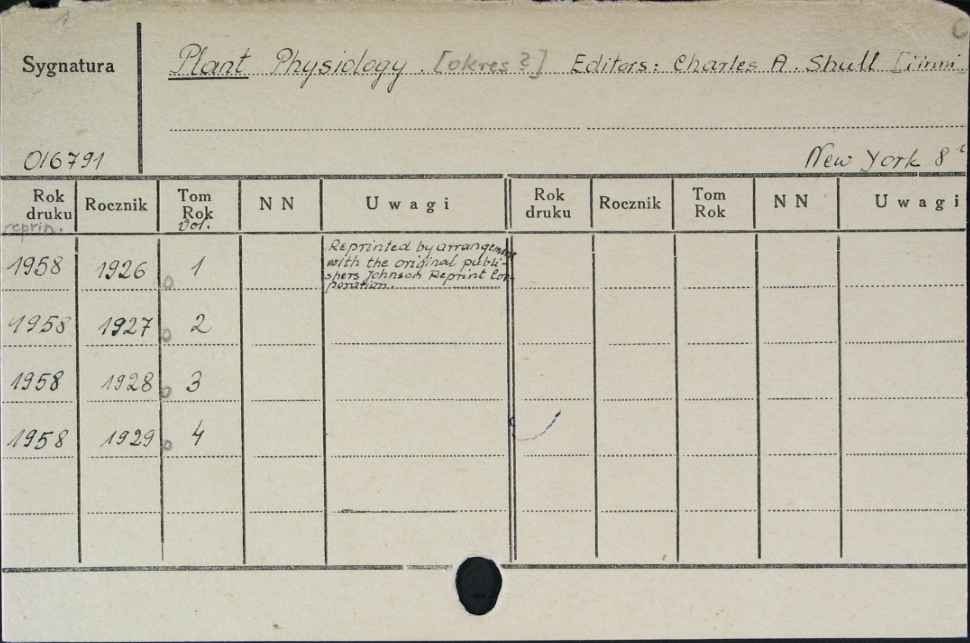 Sygnatura
Plant Physiology [okres?] Editors: Charles A. Shull [i inni
016791
New York 8°
Rok druku Rocznik Tom Rok NN Uwagi Rok druku Rocznik Tom Rok NN Uwagi
reprin. Vol.
1958 1926 1 Reprinted by arrangement
with the original publi-
shers Johnson Reprint Cor-
poration.
1958 1927 2
1958 1928 3
1958 1929 4